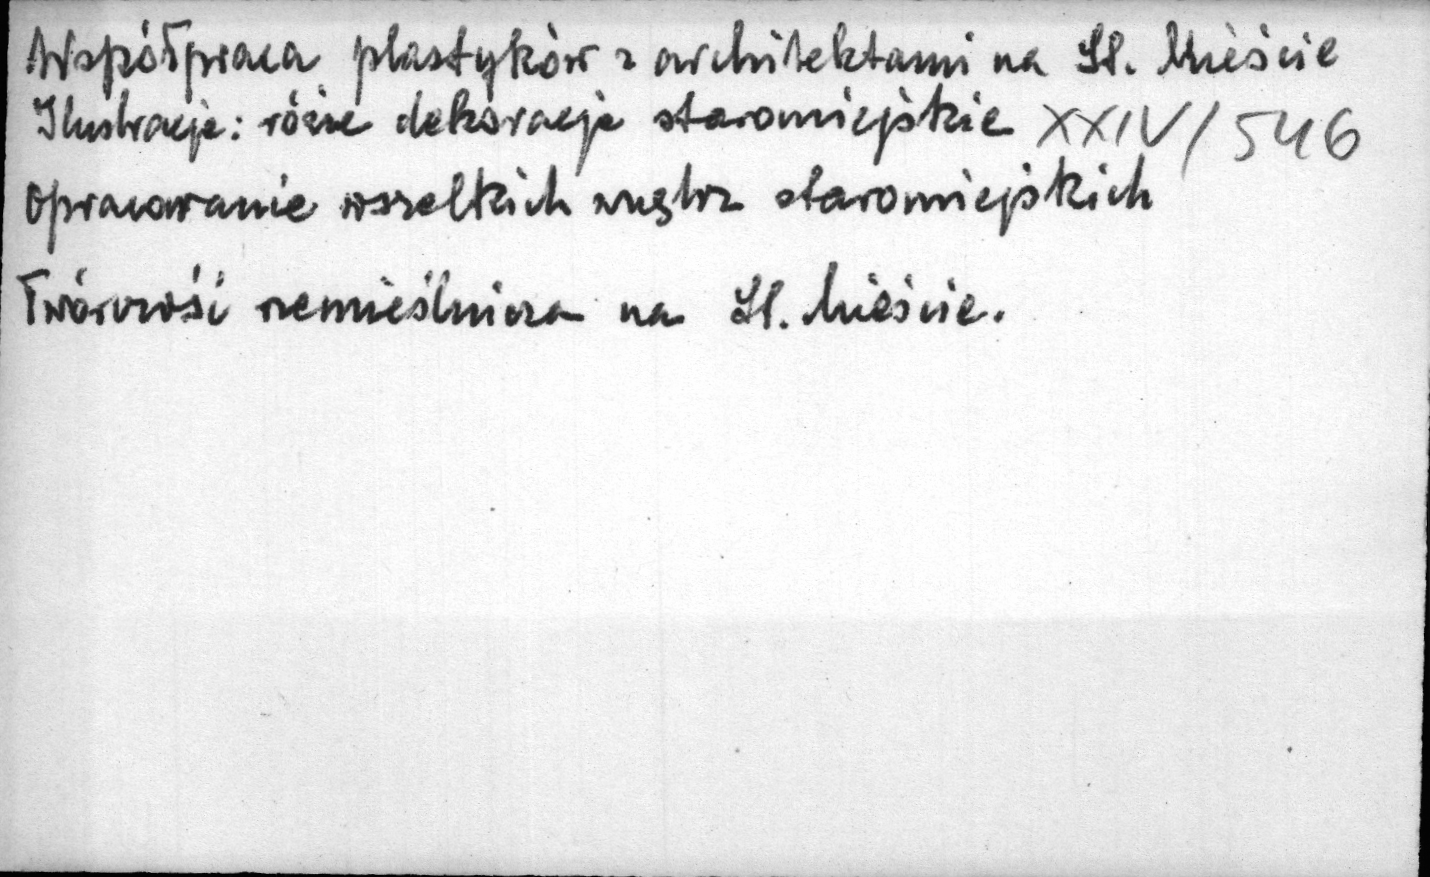 Współpraca plastyków z architektami na St. Mieście
Ilustracje: różne dekoracje staromiejskie XXIV/546
Opracowanie wszelkich wnętrz staromiejskich
Twórczość rzemieślnicza na St. Mieście.